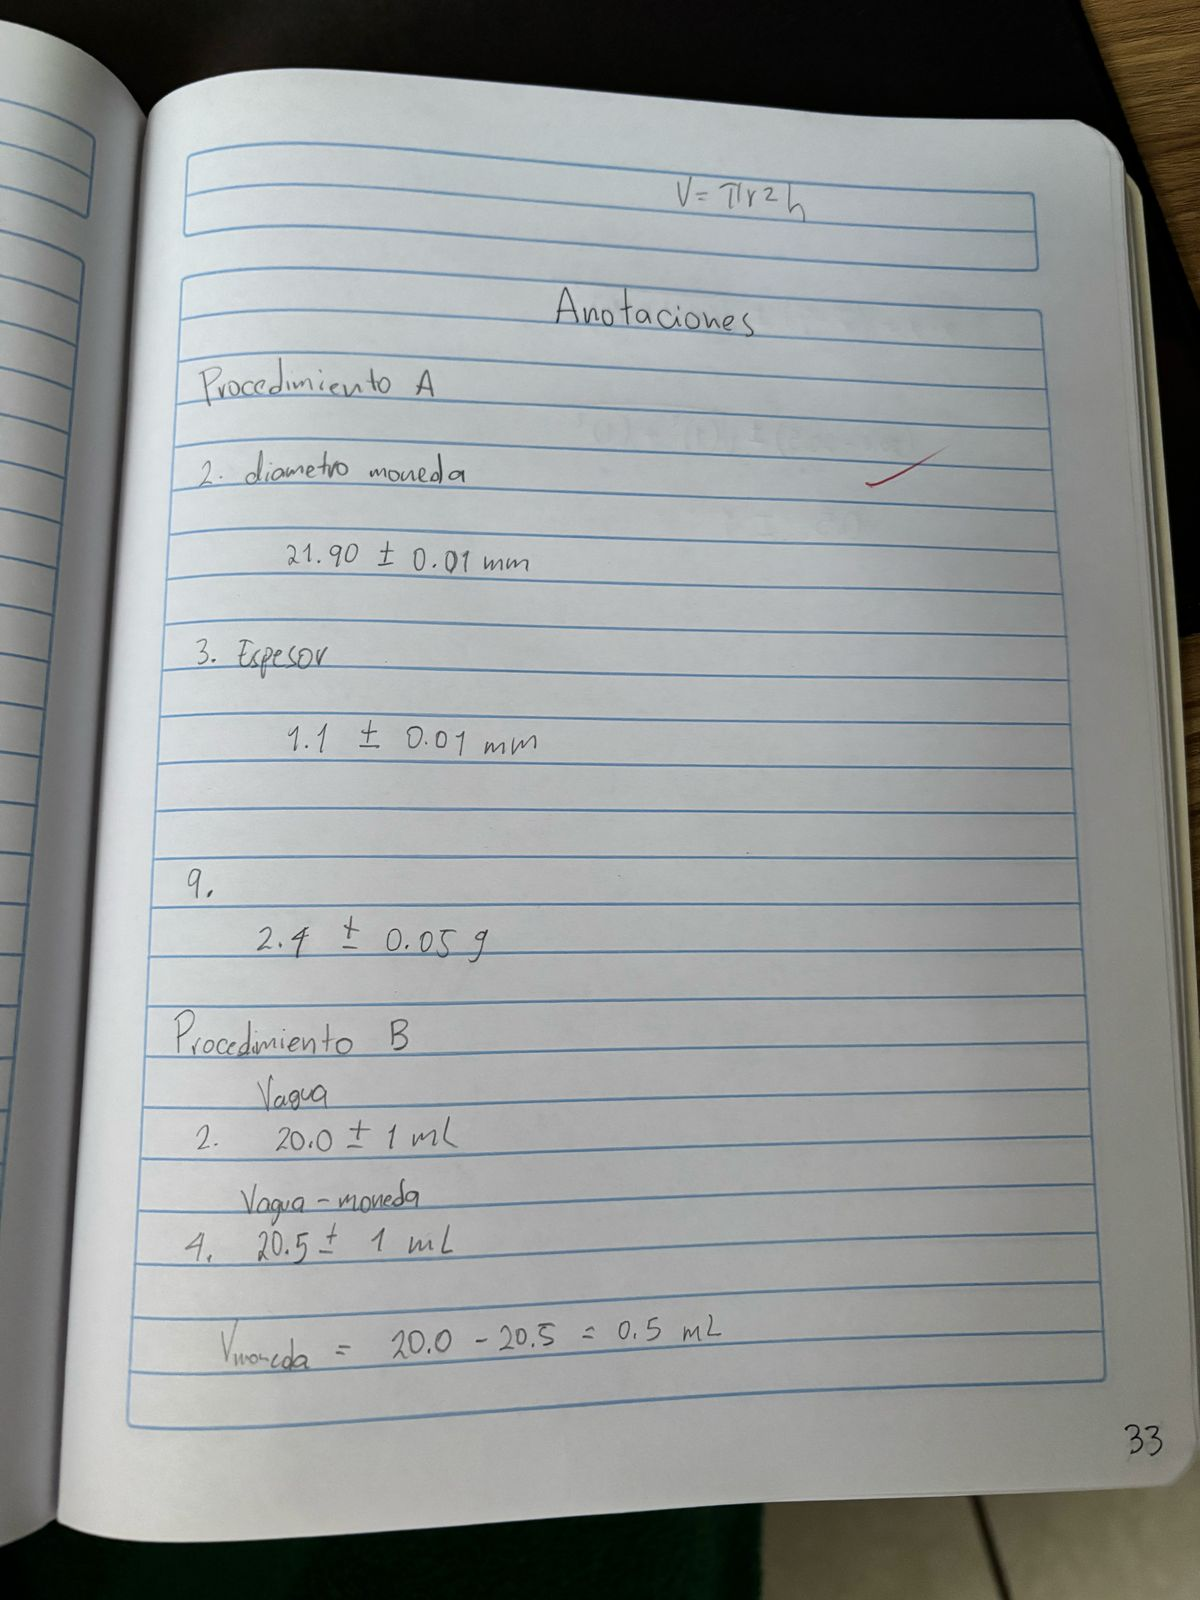 V = πr²h
Anotaciones
Procedimiento A
2. diametro moneda
21.90 ± 0.01 mm
3. Espesor
1.1 ± 0.01 mm
9.
2.4 ± 0.05 g
Procedimiento B
Vagua
2. 20.0 ± 1 mL
Vagua - moneda
4. 20.5 ± 1 mL
Vmoneda = 20.0 - 20.5 = 0.5 mL
33